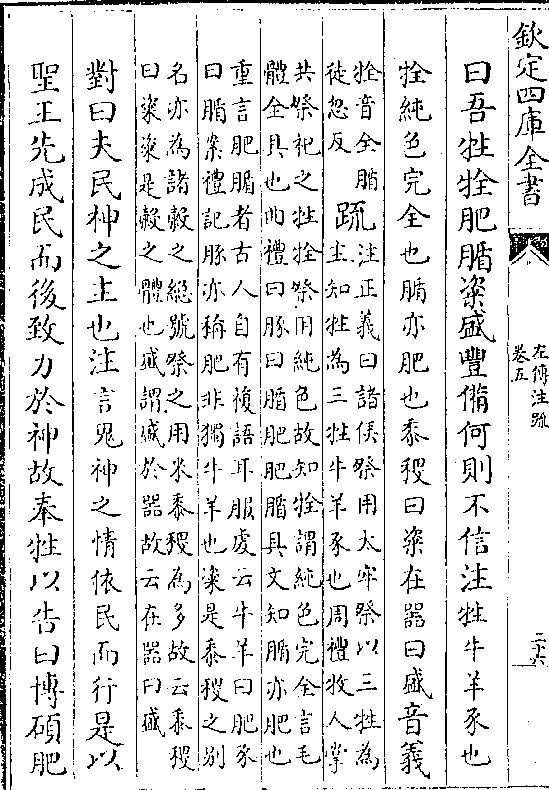 欽定四庫全書
左傳注疏
卷五
二十六
曰吾牲牷肥腯粢盛豐備何則不信注牲牛羊豕也
牷純色完全也腯亦肥也黍稷曰粢在器曰盛音義
牷音全腯
徒忽反
疏
注正義曰諸侯祭用大牢祭以三牲為
主知牲為三牲牛羊豕也周禮牧人掌
共祭祀之牲牷祭用純色故知牷謂純色完全言毛
體全具也曲禮曰豚曰腯肥肥腯具文知腯亦肥也
重言肥腯者古人自有複語耳服虔云牛羊曰肥豕
曰腯案禮記豚亦稱肥非獨牛羊也粢是黍稷之别
名亦為諸穀之緫號祭之用米黍稷為多故云黍稷
曰粢粢是穀之體也盛謂盛於器故云在器曰盛
對曰夫民神之主也注言鬼神之情依民而行是以
聖王先成民而後致力於神故奉牲以告曰博碩肥